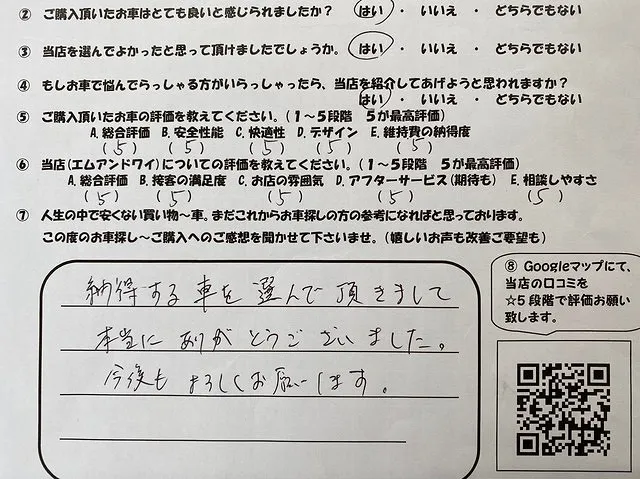 ② ご購入頂いたお車はとても良いと感じられましたか？ はい ・ いいえ ・ どちらでもない
③ 当店を選んでよかったと思って頂けましたでしょうか。 はい ・ いいえ ・ どちらでもない
④ もしお車で悩んでらっしゃる方がいらっしゃったら、当店を紹介してあげようと思われますか？
はい ・ いいえ ・ どちらでもない
⑤ ご購入頂いたお車の評価を教えてください。（１～５段階 ５が最高評価）
A. 総合評価 B. 安全性能 C. 快適性 D. デザイン E. 維持費の納得度
（5） （5） （5） （5） （5）
⑥ 当店（エムアンドワイ）についての評価を教えてください。（１～５段階 ５が最高評価）
A. 総合評価 B. 接客の満足度 C. お店の雰囲気 D. アフターサービス（期待も） E. 相談しやすさ
（5） （5） （5） （5） （5）
⑦ 人生の中で安くない買い物～車。まだこれからお車探しの方の参考になればと思っております。
この度のお車探し～ご購入へのご感想を聞かせて下さいませ。（嬉しいお声も改善ご要望も）
納得する車を選んで頂きまして
本当にありがとうございました。
今後もよろしくお願いします。
⑧ Googleマップにて、
当店の口コミを
☆５段階で評価お願い
致します。